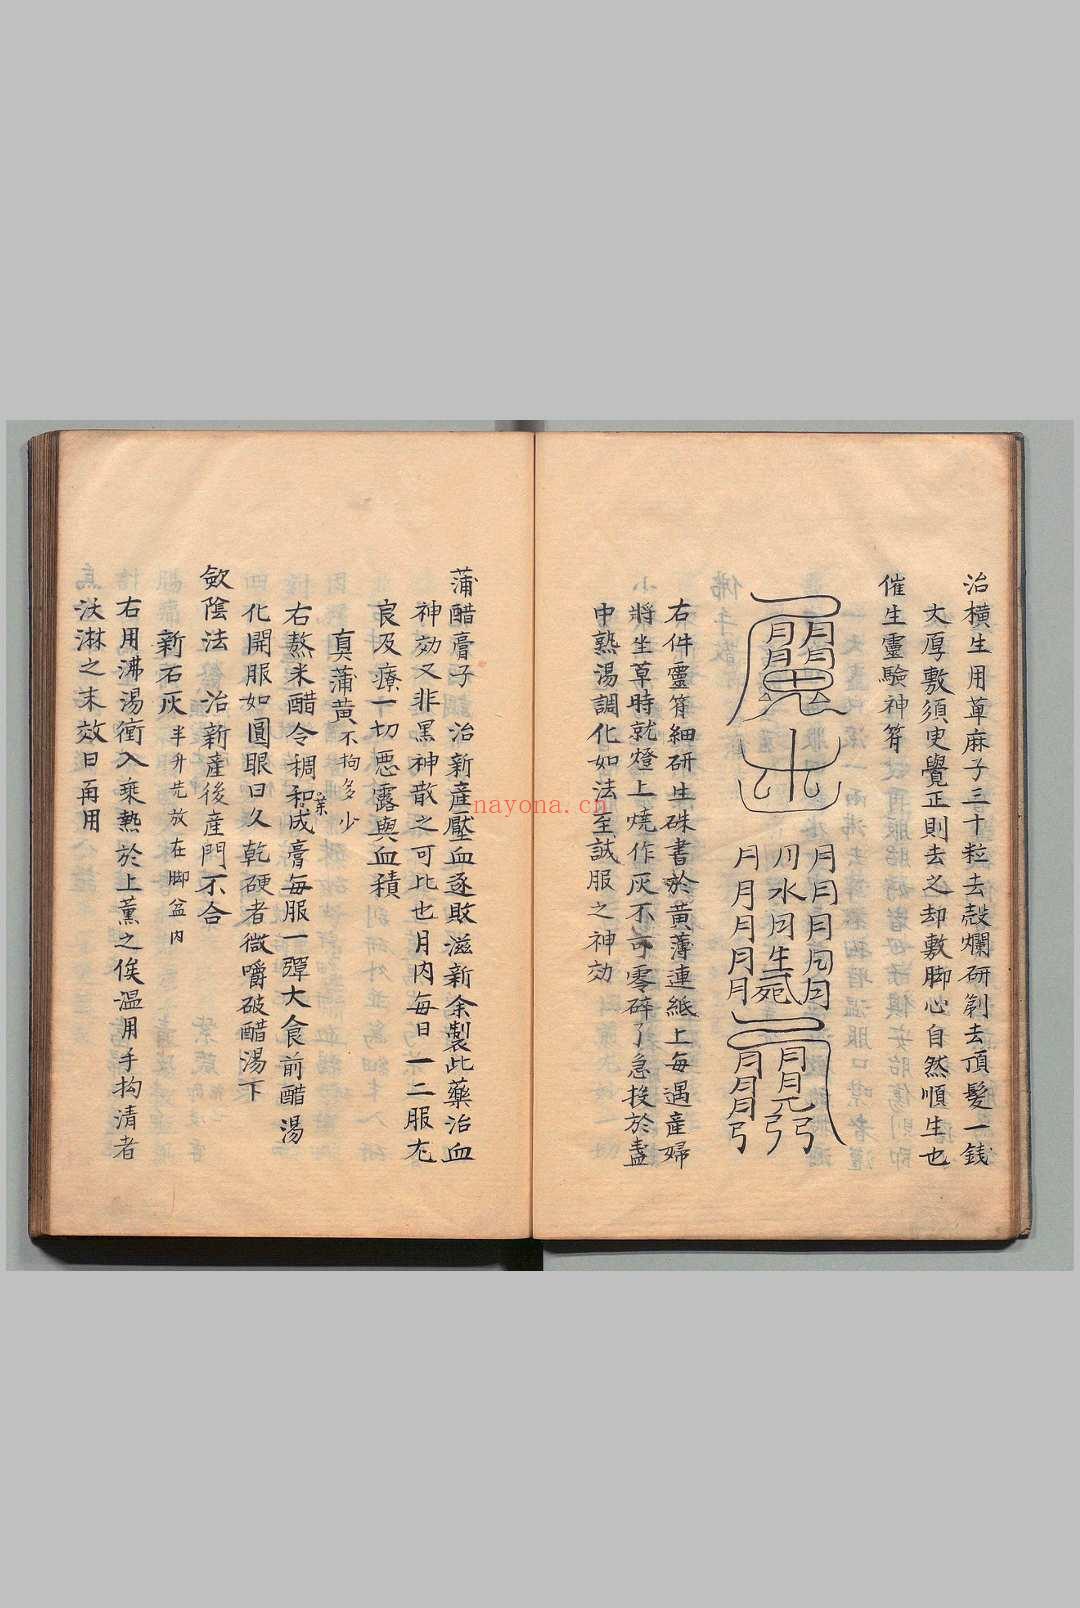 治横生用萆麻子三十粒去殼爛研劄去頂髮一錢
大厚敷須臾覺正則去之却敷脚心自然順生也
催生靈驗神符
月月月月月
川水日生死
月月月月月
右件靈符細研生硃書於黄薄連紙上每遇産婦
將坐草時就燈上燒作灰不可零碎了急投於盞
中熟湯調化如法至誠服之神効
蒲醋膏子 治新産壓血逐敗滋新余製此藥治血
神効又非黑神散之可比也月内每日一二服尤
良及療一切惡露與血積
真蒲黄不拘多少
右熬米醋令稠和藥成膏每服一彈大食前醋湯
化開服如圓眼日久乾硬者微嚼破醋湯下
歛陰法 治新産後産門不合
新石灰半升先放在脚盆内
右用沸湯衝入乘熱於上薰之俟温用手抅清者
沃淋之未效日再用
nayona.cn